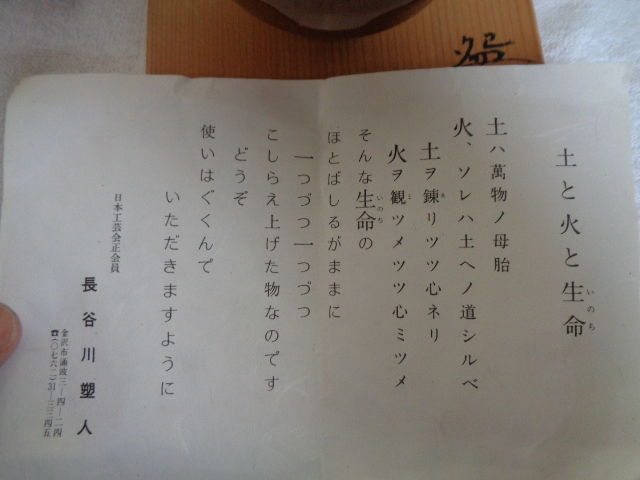 土と火と生命
いのち
土ハ萬物ノ母胎
火、ソレハ土ヘノ道シルベ
土ヲ錬リツツ心ネリ
火ヲ観ツメツツ心ミツメ
そんな生命の
いのち
ほとばしるがままに
一つづつ一つづつ
こしらえ上げた物なのです
どうぞ
使いはぐくんで
いただきますように
日本工芸会正会員
長谷川塑人
金沢市涌波三―四―二四
☎(〇七六二)31―三三四五